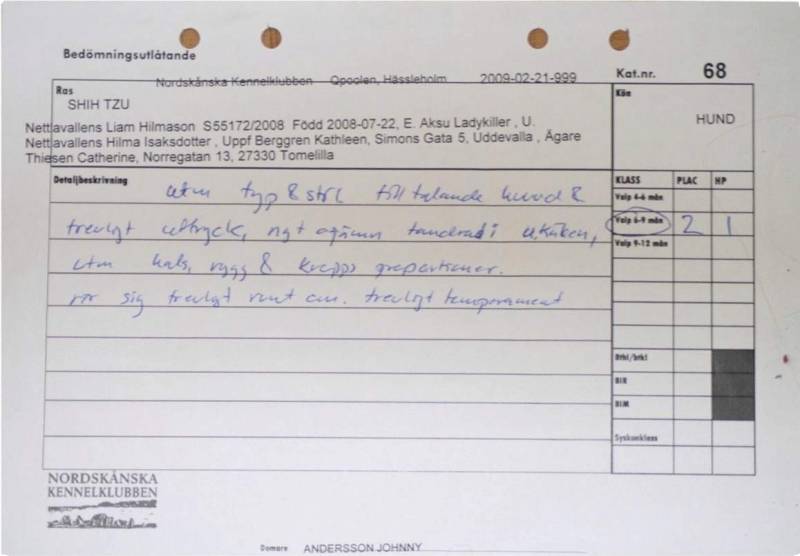 Bedömningsutlåtande
Nordskånska Kennelklubben Qpoolen, Hässleholm 2009-02-21-999
Kat.nr. 68
Ras
SHIH TZU
Kön
HUND
Nettavallens Liam Hilmason S55172/2008 Född 2008-07-22, E. Aksu Ladykiller , U.
Nettavallens Hilma Isaksdotter , Uppf Berggren Kathleen, Simons Gata 5, Uddevalla , Ägare
Thiesen Catherine, Norregatan 13, 27330 Tomelilla
Detaljbeskrivning
KLASS PLAC HP
utm typ & strl tilltalande huvud &
Valp 4-6 mån
trevligt uttryck, ngt ojämn tandrad i u.käken,
Valp 6-9 mån 2 1
utm hals, rygg & kropps proportioner.
Valp 9-12 mån
rör sig trevligt runt om. trevligt temperament
Btkl/brkl
BIR
BIM
Syskonklass
NORDSKÅNSKA
KENNELKLUBBEN
Domare ANDERSSON JOHNNY